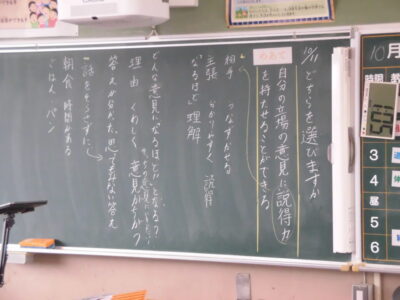 10/11 どちらを選びますか
めあて
自分の立場の意見に説得力
を持たせることができる
相手 うなずかせる
主張 分かりやすく 説得
なるほど 理解
どんな意見になるほどとなる?
理由 くわしく 意見
答えが分かった 思ってもみない答え
話をそらさずに
朝食 時間がある
ごはん パン
10月
時間
3
4
昼
5
6